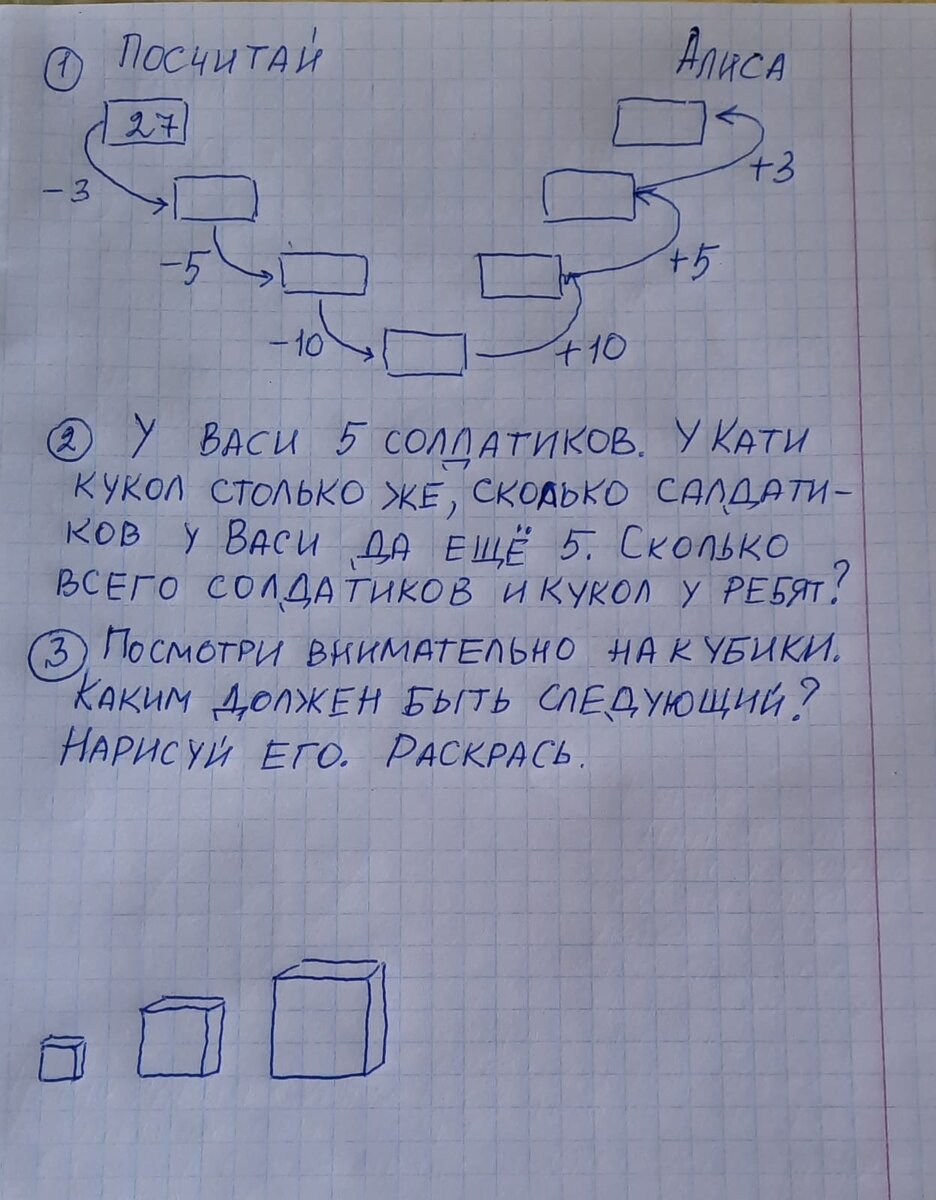 ① Посчитай Алиса
27
-3 +3
-5 +5
-10 +10
② У Васи 5 солдатиков. У Кати
кукол столько же, сколько салдати-
ков у Васи да ещё 5. Сколько
всего солдатиков и кукол у ребят?
③ Посмотри внимательно на кубики.
Каким должен быть следующий?
Нарисуй его. Раскрась.